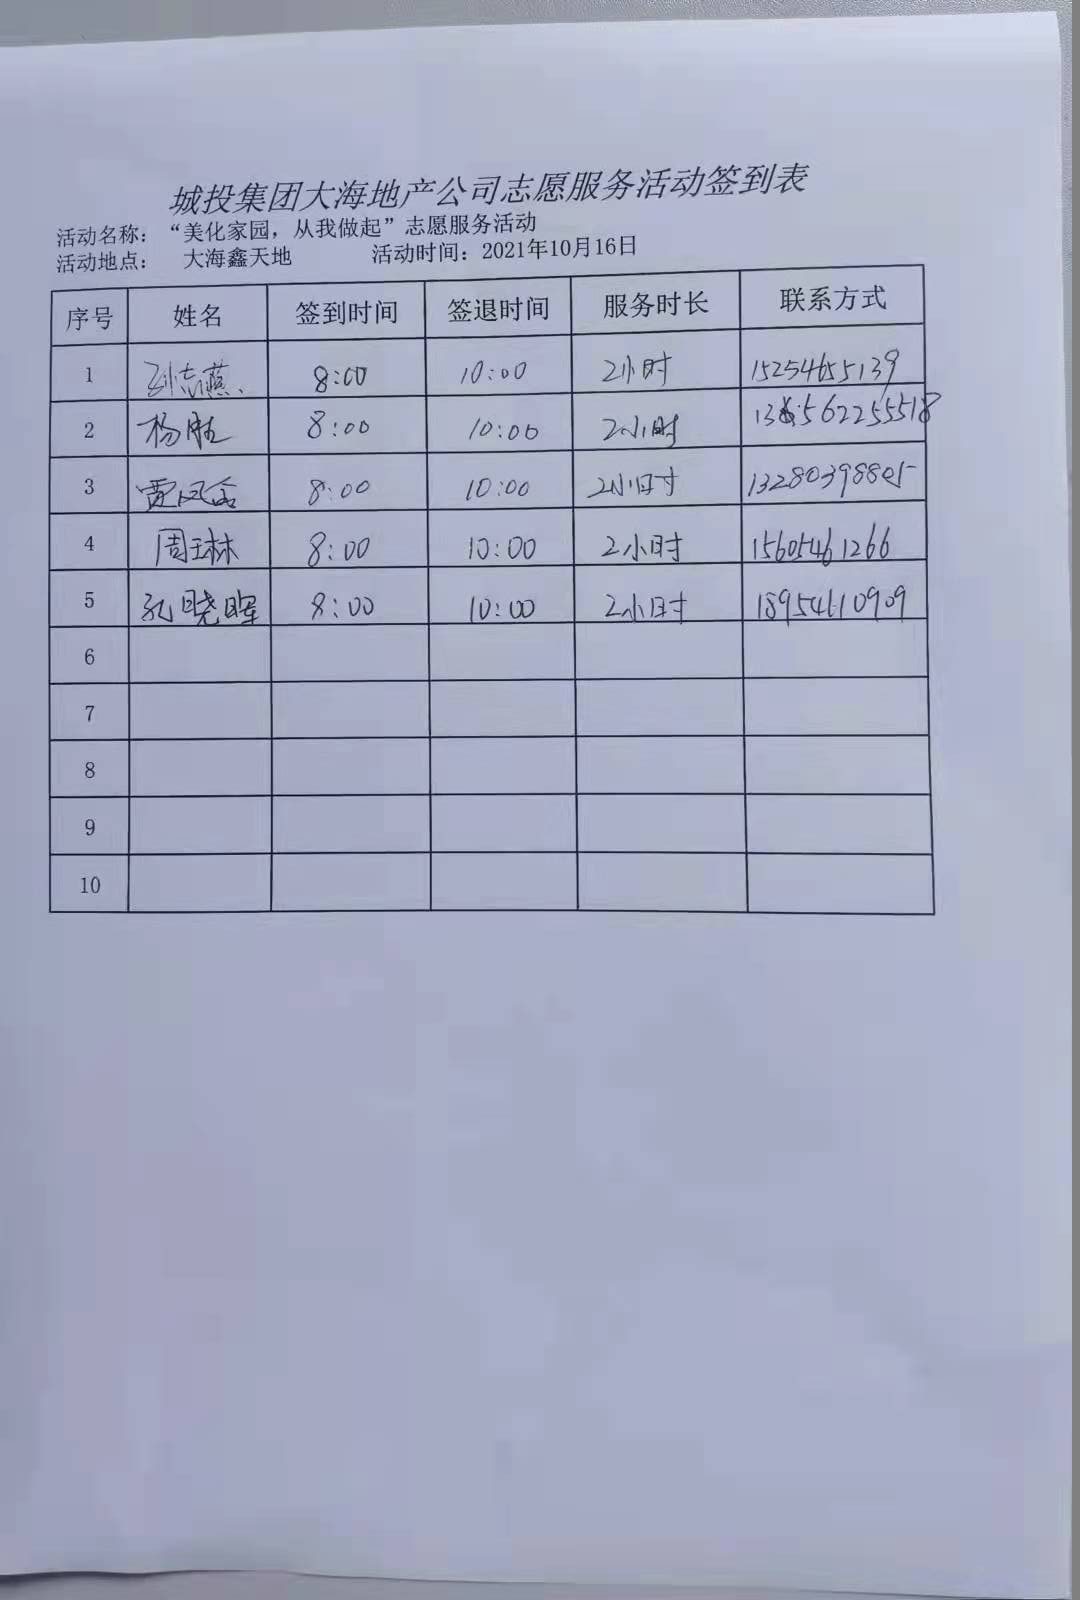 城投集团大海地产公司志愿服务活动签到表
活动名称：“美化家园，从我做起”志愿服务活动
活动地点： 大海鑫天地 活动时间：2021年10月16日
序号 姓名 签到时间 签退时间 服务时长 联系方式
1 孙志燕 8:00 10:00 2小时 15254655139
2 杨 8:00 10:00 2小时
3 贾凤 8:00 10:00 2小时 13280398805
4 周玉琳 8:00 10:00 2小时 15605461266
5 孔晓晖 8:00 10:00 2小时 18954610909
6
7
8
9
10